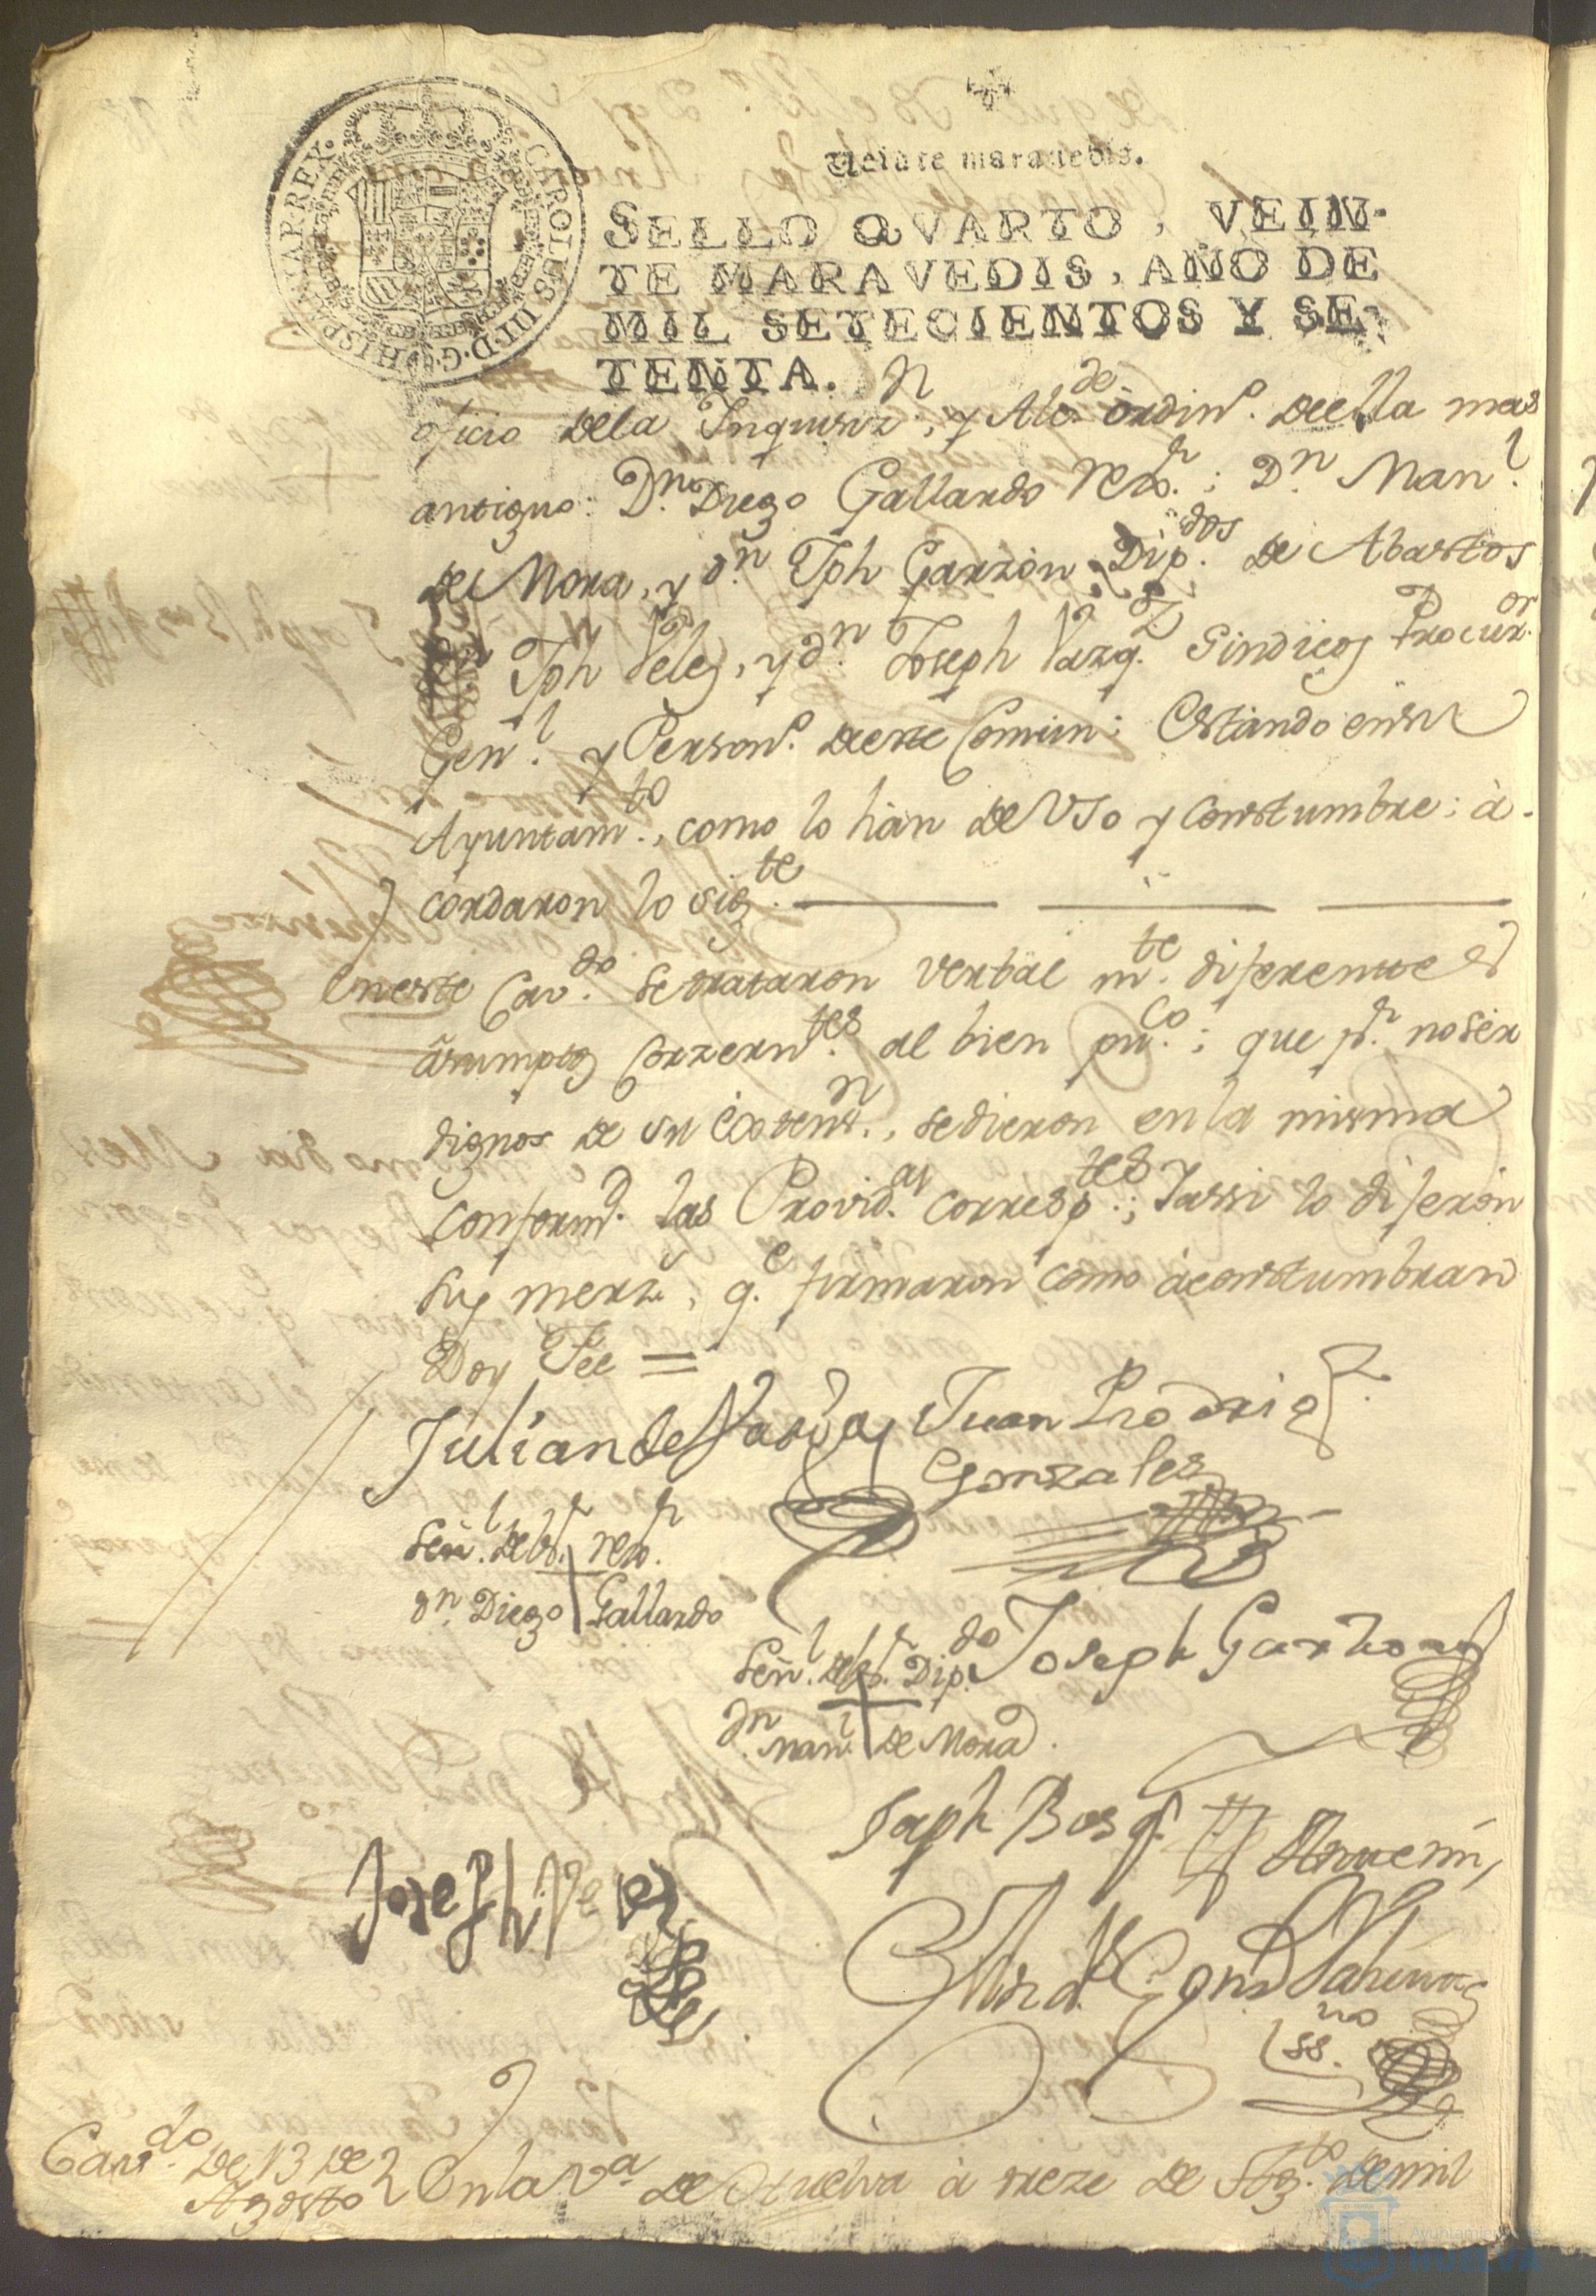 CAROLUS III·D·G·HISPANIAR·REX·
Veinte maravedis.
SELLO QVARTO, VEIN-
TE MARAVEDIS, AÑO DE
MIL SETECIENTOS Y SE-
TENTA.
oficio dela Inquisizn., y Alcde. ordino. deella mas
antiguo: Dn. Diego Gallardo rexor.; Dn. Manl.
de Mora, y dn. Jph Garzon Dipdos. de Abastos
Dn Jph Velez, y dn. Joseph Vazqz. Sindicos Procuror.
Genl. y Persono. deeste Comun: Estando ensu
Ayuntamto., como lo han de Vso y Constumbre: à-
cordaron lo sigte.
Eneste Cavdo. se trataron verbalmte. diferentes
asumptos Conzerntes. al bien puco.; que pr. noser
dignos de su Extensn., sedieron en la misma
conformd. las Providas. correspites.; Yassi lo dijeron
sus merzs., qe. firmaron como àconstumbran
Doy Fee =
Julian de Juan Rodrigz.
Gonzales
Señl. del sr. rexr.
dn. Diego Gallardo
Señl. del sr. Dipdo. Joseph Garzon
Dn. Manl. de Mora
Joseph Velez
Antte mi,
ssno.
Cavdo. De 13 de Agosto
En la va. de Huelva à treze de Agto. demil
Ayuntamiento de
HUELVA